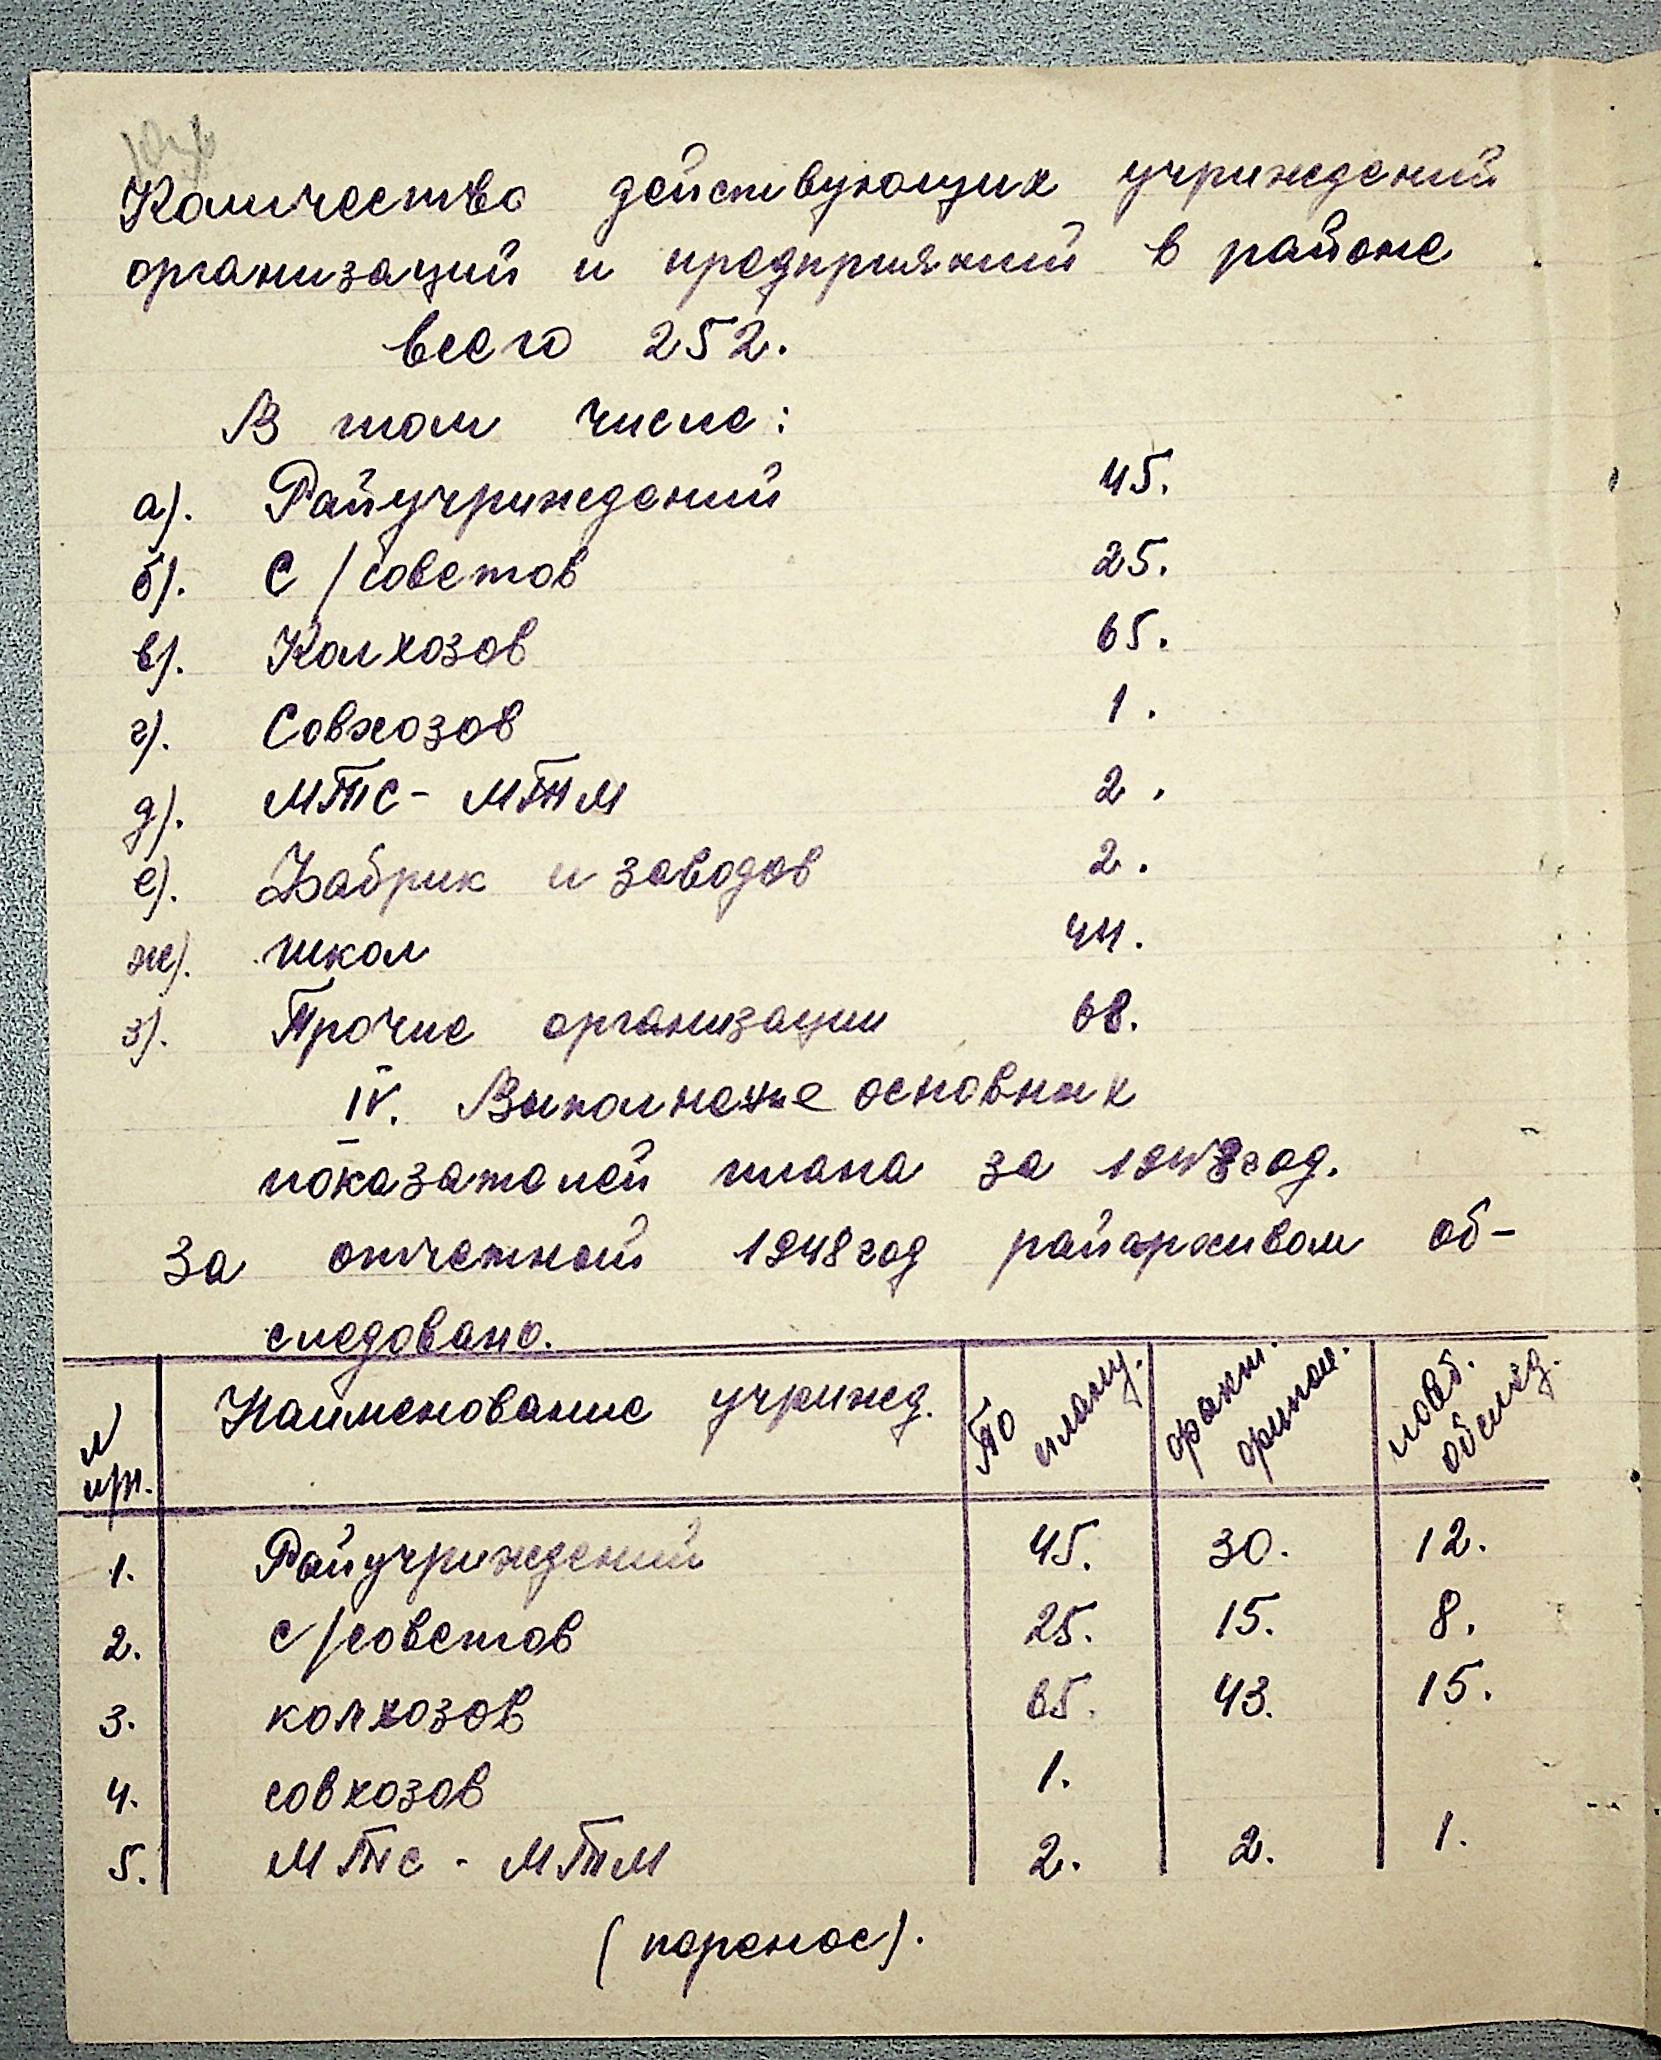 Количество действующих учриждений
организаций и предприятий в районе
всего 252.
В том числе:
а). Райучриждений 45.
б). С/советов 25.
в). Колхозов 65.
г). Совхозов 1.
д). МТС - МТМ 2.
е). Фабрик и заводов 2.
ж). школ 44.
з). Прочие организации 68.
IV. Выполнение основных
показателей плана за 1948 год.
За отчетной 1948 год райархивом об-
следовано.
N п/п. Наименование учрижд. По плану. факт. повт. обслед.
1. Райучриждений 45. 30. 12.
2. с/советов 25. 15. 8.
3. колхозов 65. 43. 15.
4. совхозов 1.
5. МТС - МТМ 2. 2. 1.
(перенос).